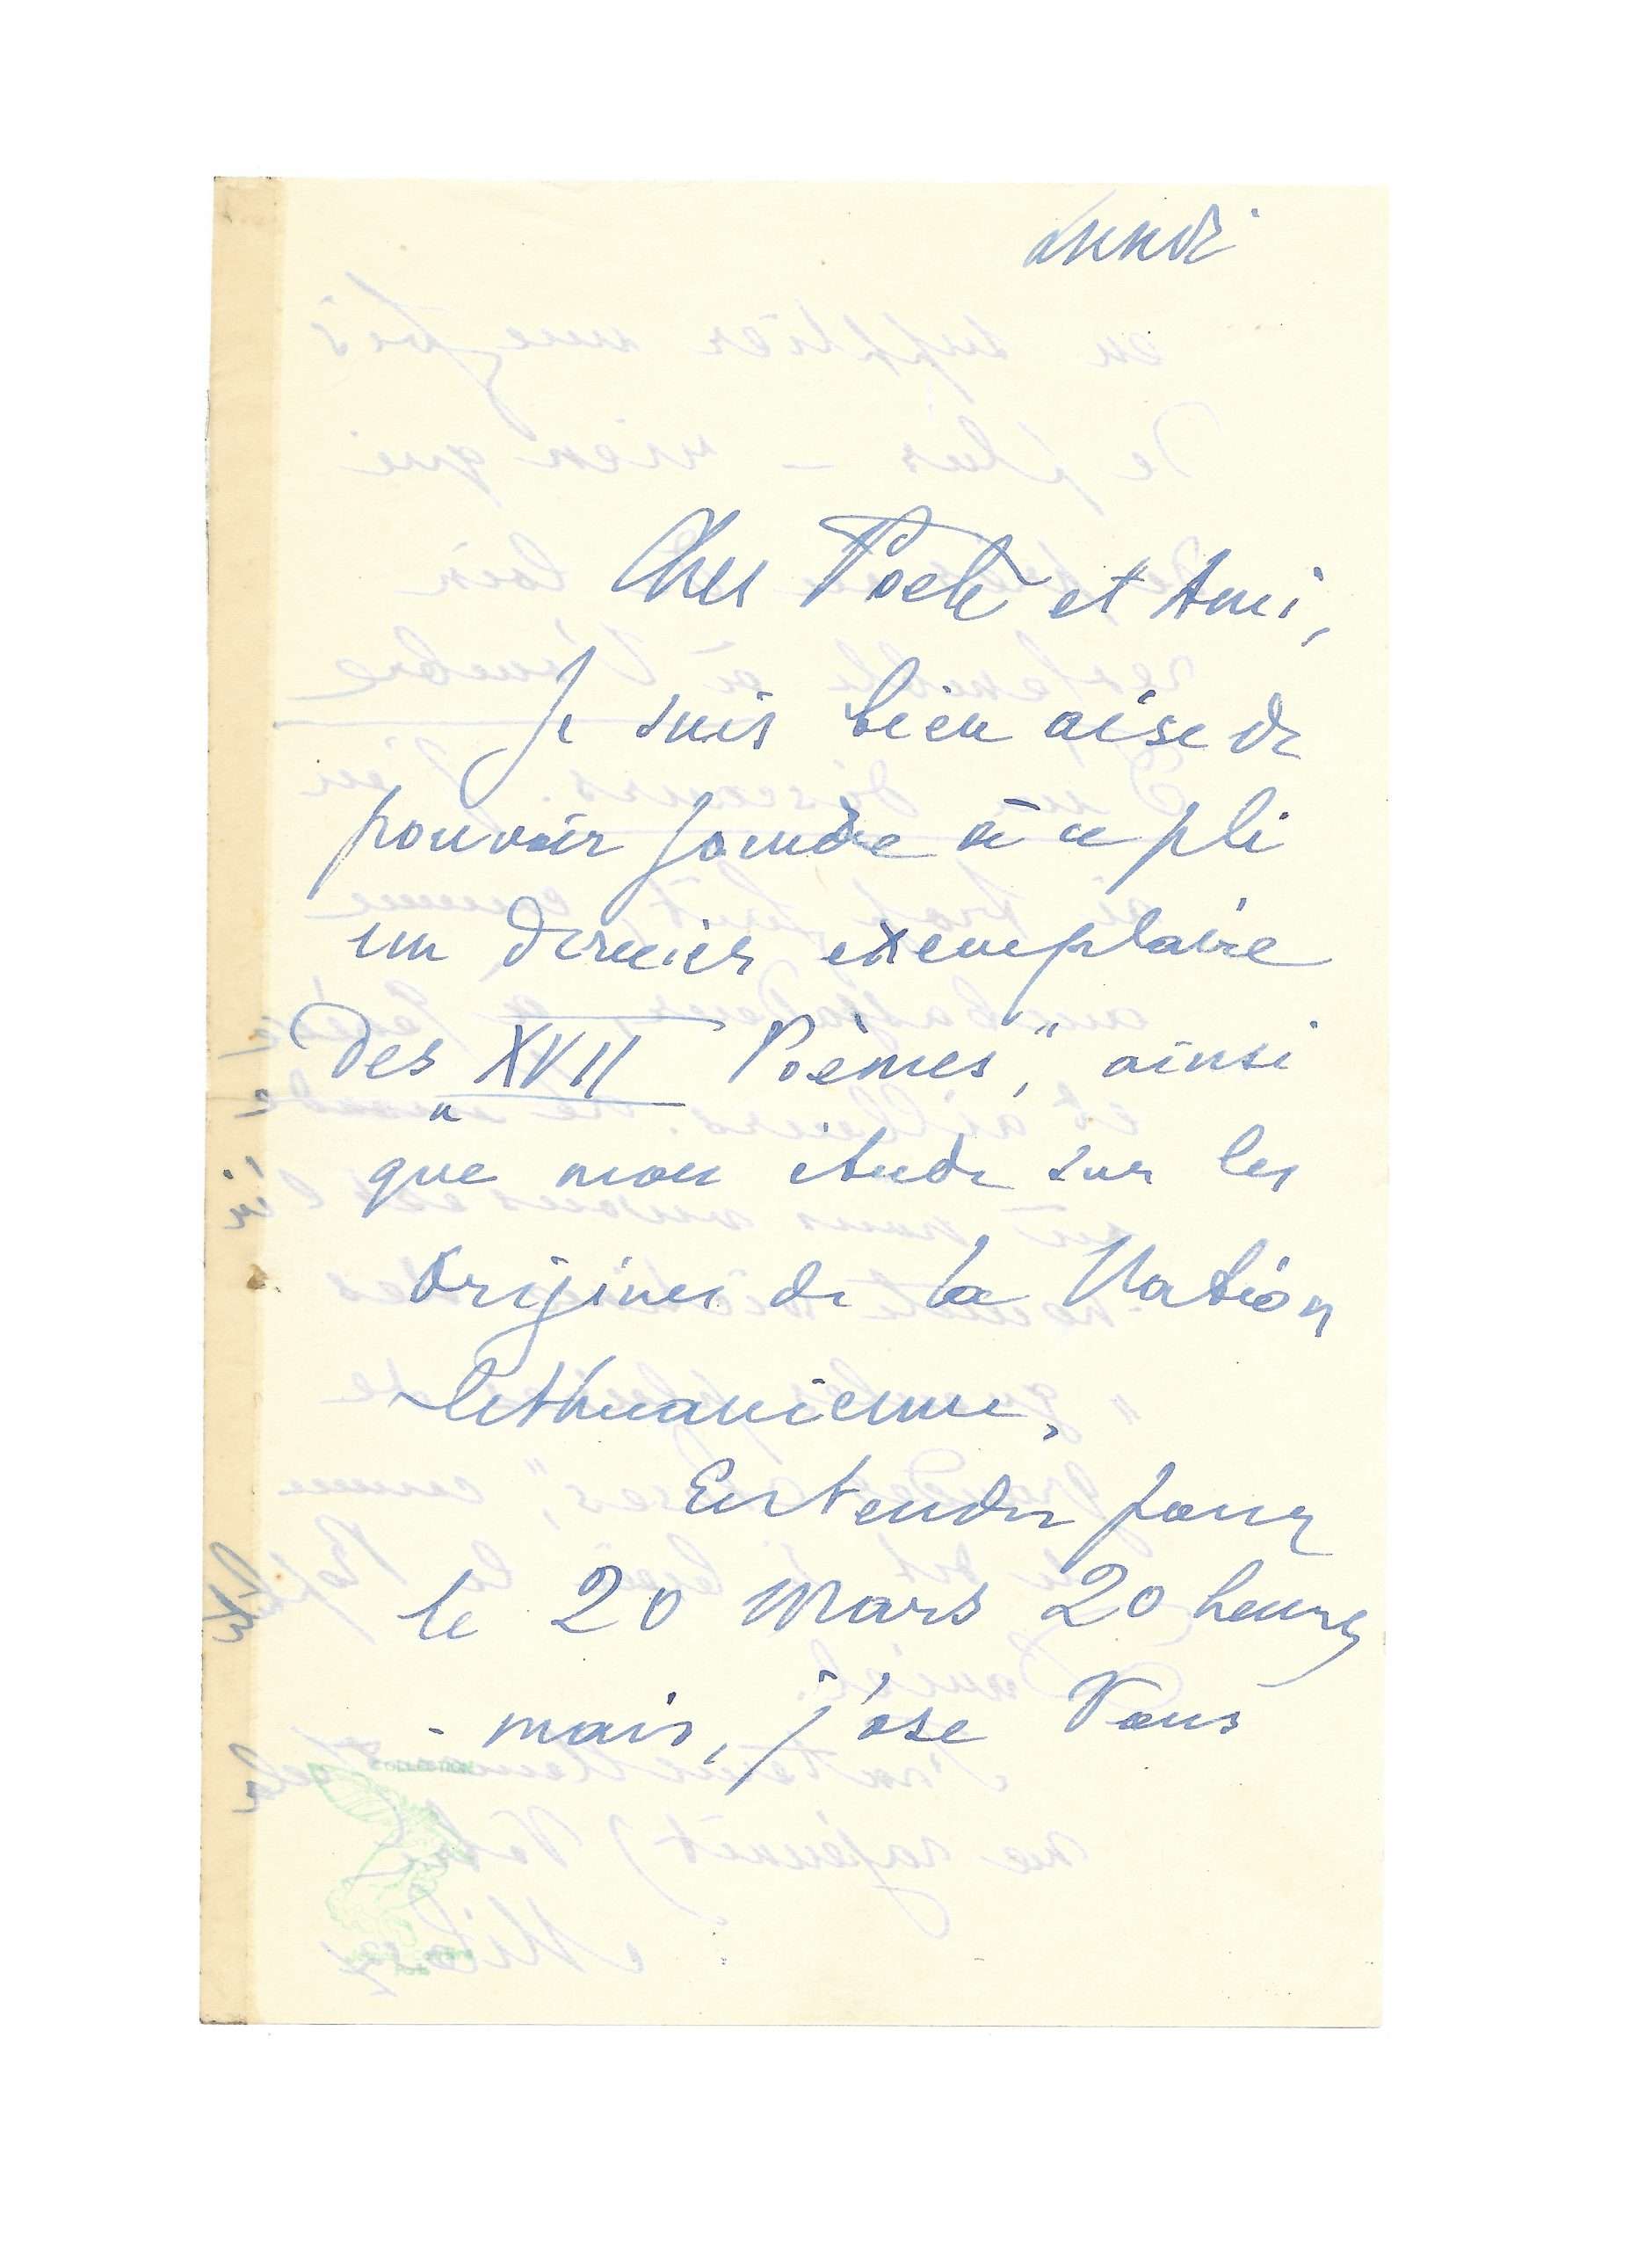 Lundi
Cher Poète et Ami,
Je suis bien aise de
pouvoir joindre à ce pli
un dernier exemplaire
des „XVII Poèmes“, ainsi
que mon étude sur les
Origines de la Nation
lithuanienne.
Entendu pour
le 20 mars 20 heures
- mais, j'ose Vous